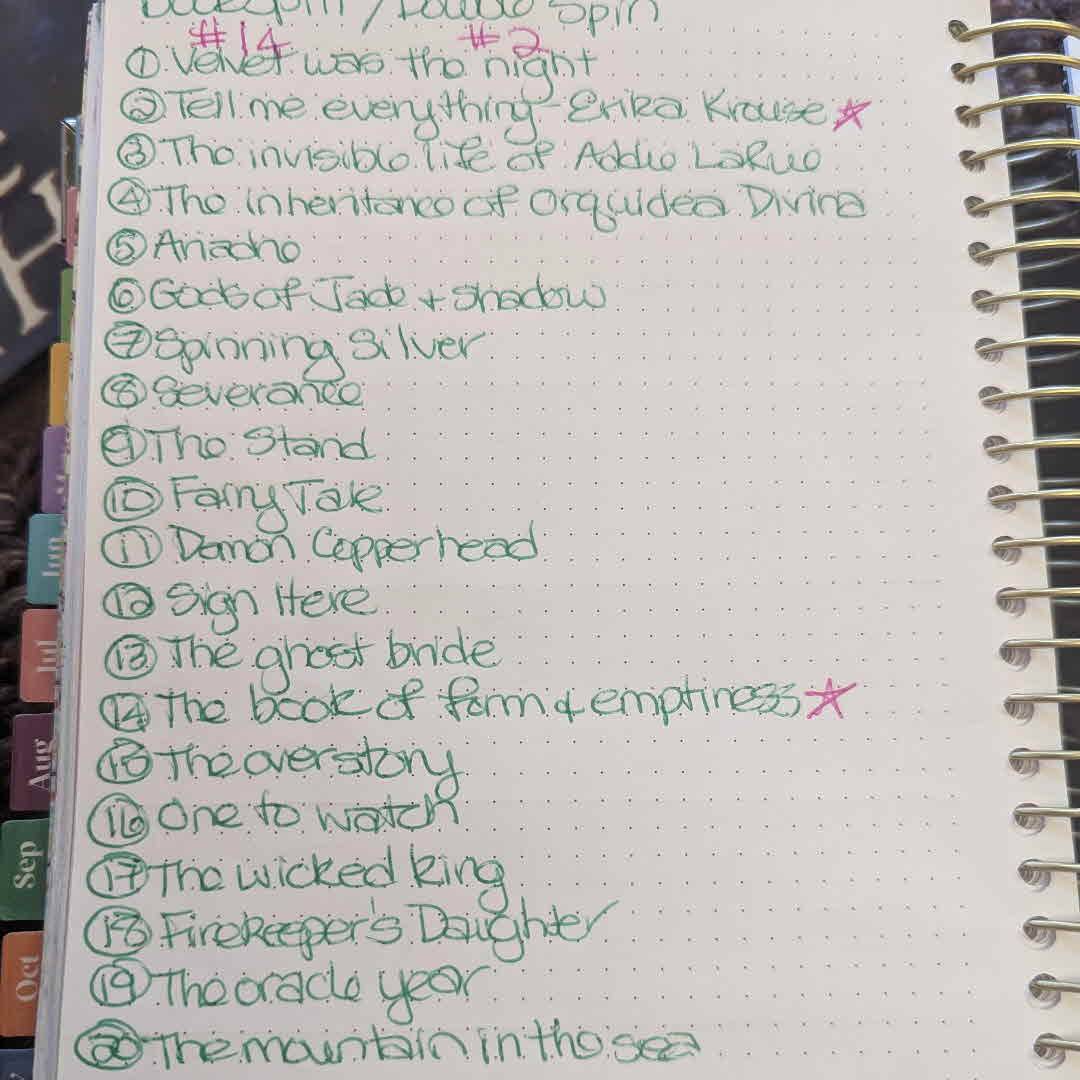 BookSpin / Double Spin
#14 #2
① Velvet was the night
② Tell me everything - Erika Krouse ☆
③ The invisible life of Addie LaRue
④ The inheritance of Orquidea Divina
⑤ Ariadne
⑥ Gods of Jade + shadow
⑦ Spinning Silver
⑧ Severance
⑨ The Stand
⑩ Fairy Tale
⑪ Demon Copperhead
⑫ Sign Here
⑬ The ghost bride
⑭ The book of form & emptiness ☆
⑮ The overstory
⑯ One to watch
⑰ The wicked king
⑱ Firekeeper's Daughter
⑲ The oracle year
⑳ The mountain in the sea
Jun
Jul
Aug
Sep
Oct